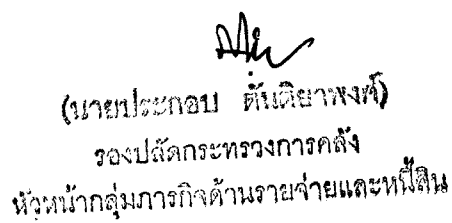 (นายประกอบ ตันติยาพงศ์)
รองปลัดกระทรวงการคลัง
หัวหน้ากลุ่มภารกิจด้านรายจ่ายและหนี้สิน